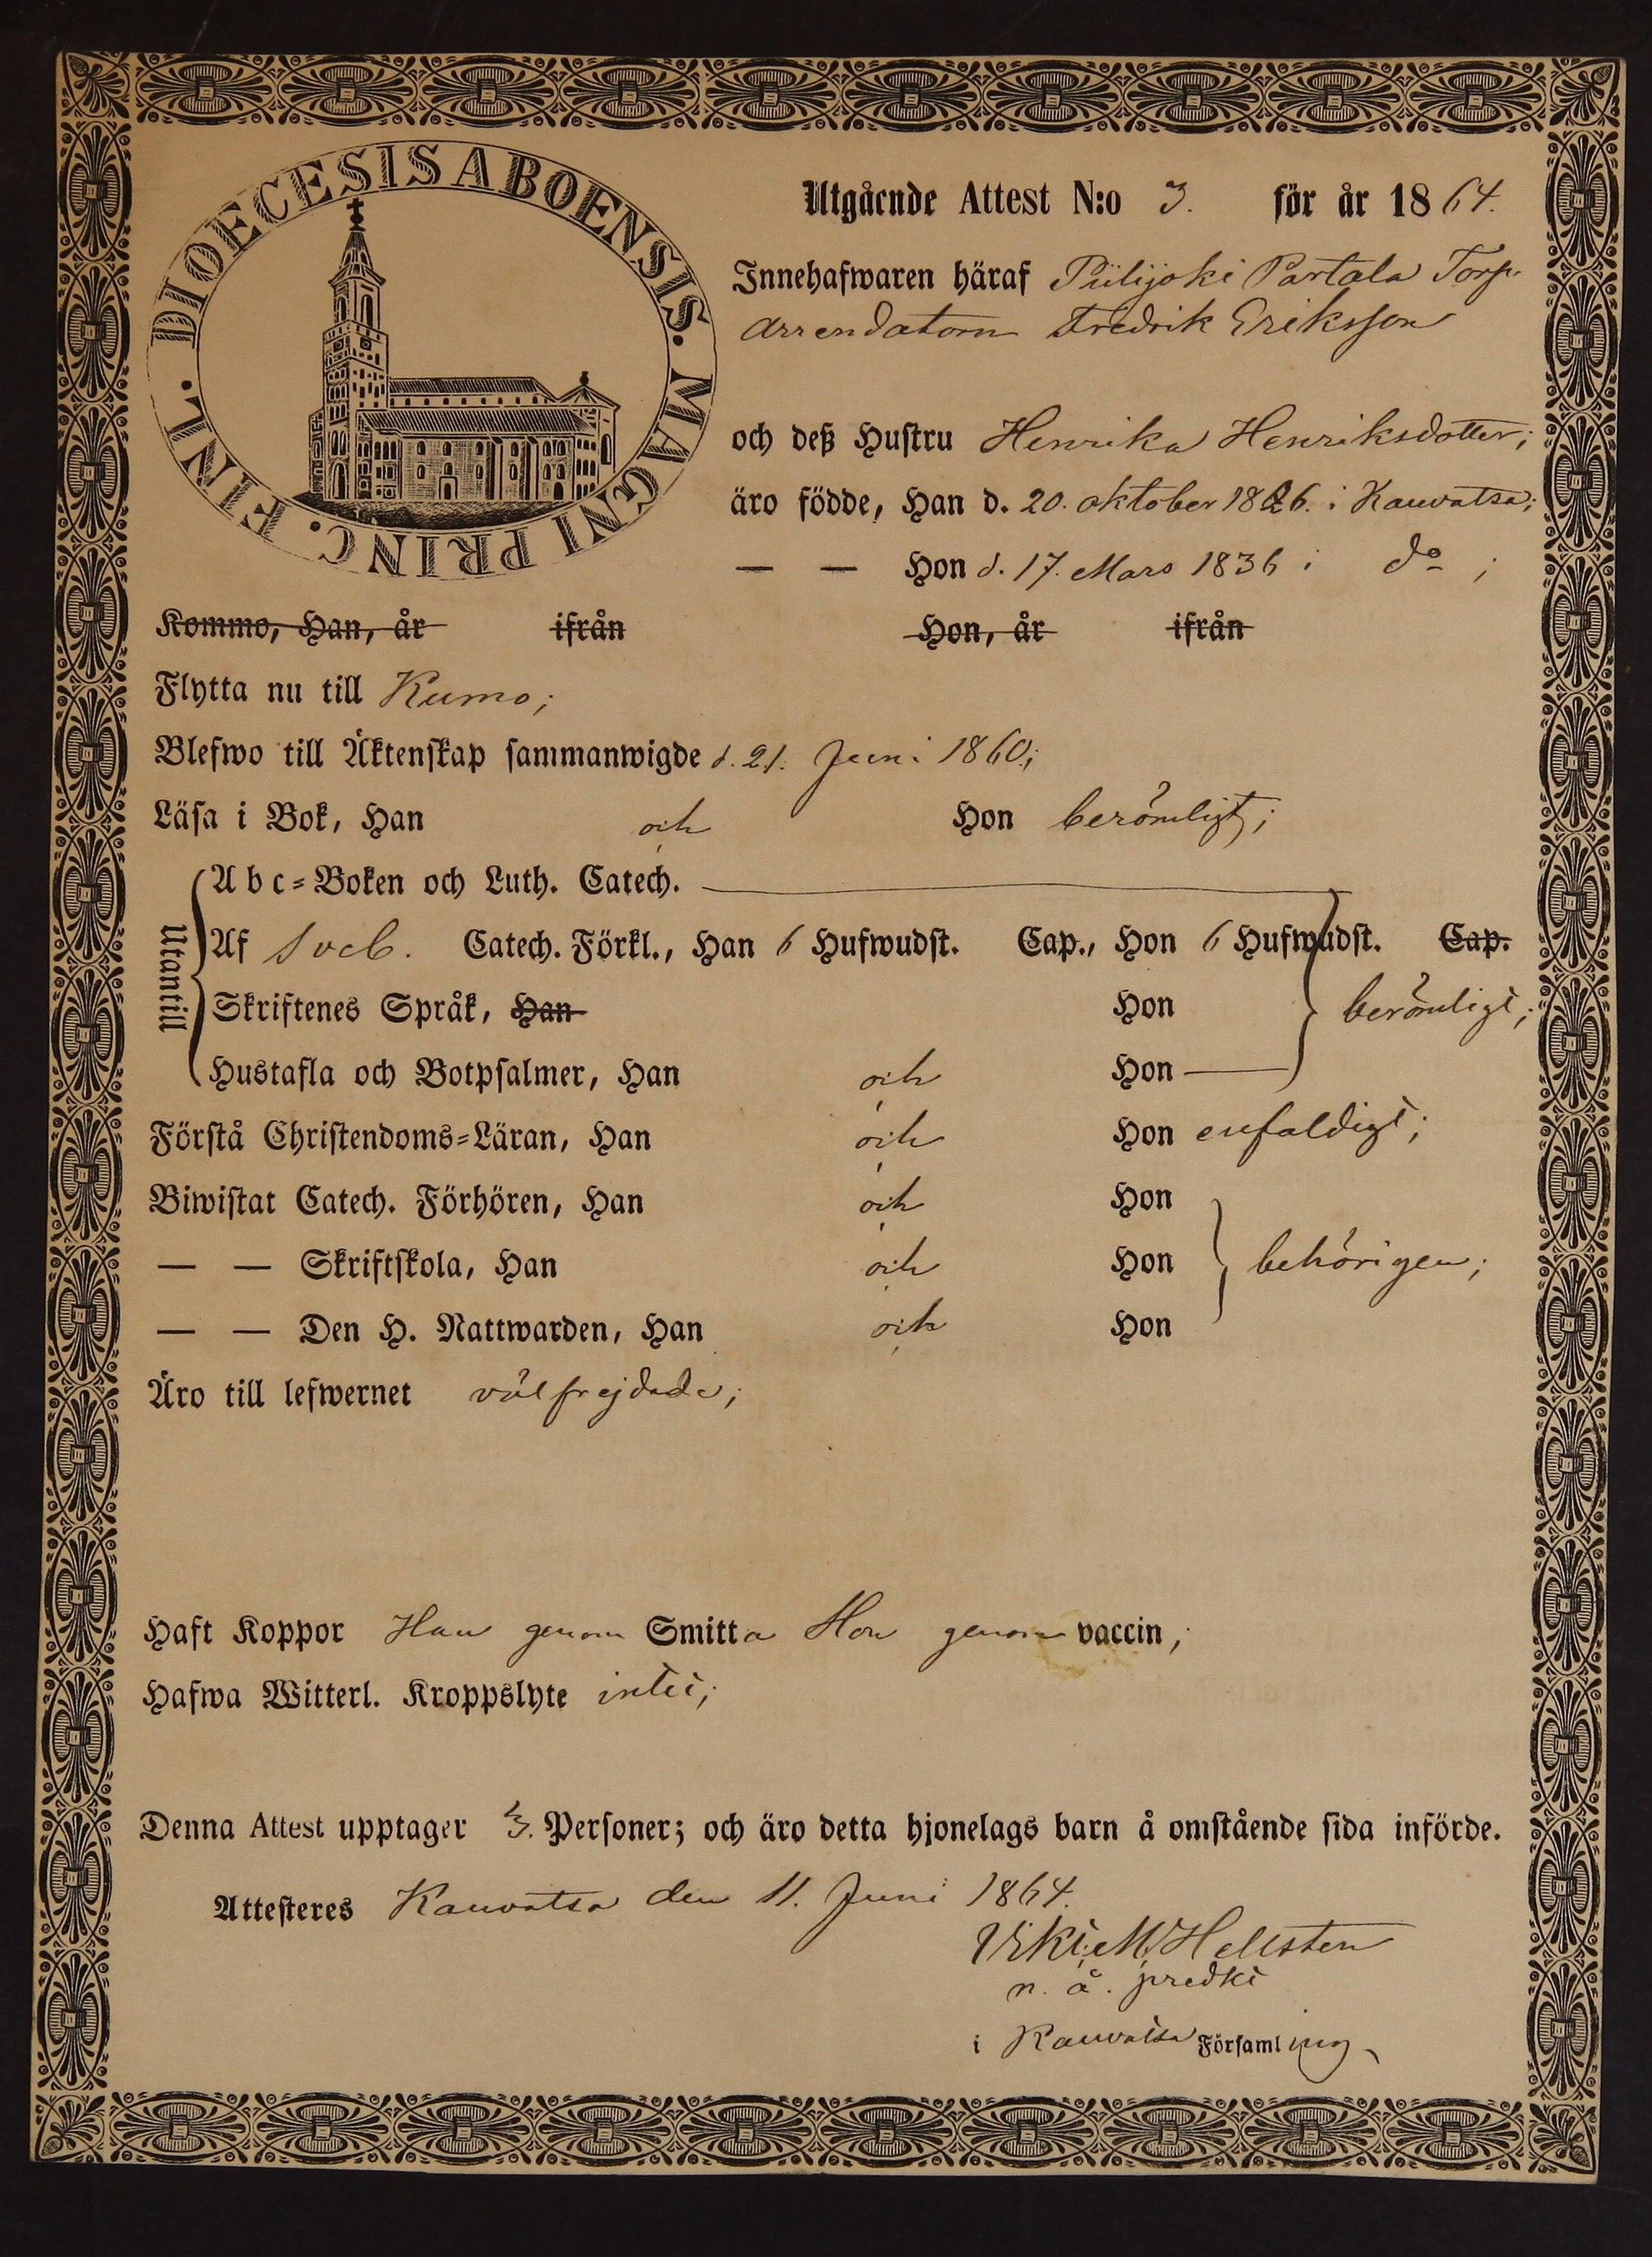 DIOECESIS ABOENSIS. MAGNI PRINC. FINL.
Utgående Attest N:o 3. för år 1864.
Innehafwaren häraf Piilijoki Partala Torp.
arrendatorn Fredrik Eriksson
och deß Hustru Henrika Henriksdotter;
äro födde, Han d. 20. oktober 1826. i Kauvatsa;
— — Hon d. 17. Mars 1836 i do;
Kommo, Han, år ifrån Hon, år ifrån
Flytta nu till Kumo;
Blefwo till Äktenskap sammanwigde d. 21. Juni 1860;
Läsa i Bok, Han och Hon berömligt;
Utantill
Abc-Boken och Luth. Catech.
Af Sveb. Catech. Förkl., Han 6 Hufwudst. Cap., Hon 6 Hufwudst. Cap.
Skriftenes Språk, Han Hon berömligt;
Hustafla och Botpsalmer, Han och Hon
Förstå Christendoms-Läran, Han och Hon enfaldigt;
Biwistat Catech. Förhören, Han och Hon
— — Skriftskola, Han och Hon behörigen;
— — Den H. Nattwarden, Han och Hon
Äro till lefwernet välfrejdade;
Haft Koppor Han genom Smitta Hon genom vaccin;
Hafwa Witterl. Kroppslyte intet;
Denna Attest upptager Personer; och äro detta hjonelags barn å omstående sida införde.
Attesteres Kauvatsa den 11. Juni 1864.
M. Hellsten
n. å. predkt
i Kauvatsa Församling